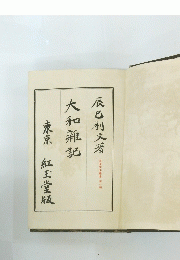 辰巳利文著
大和雑記
東京 紅玉堂版